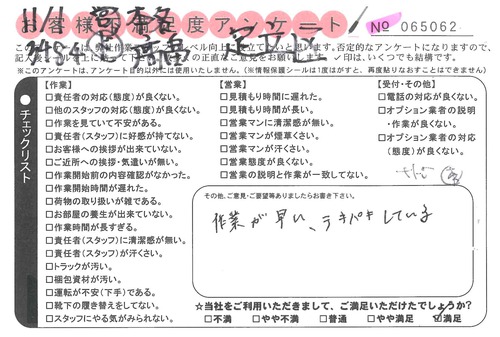 お客様不満足度アンケート
№ 065062
※このアンケートは、アンケート目的以外には使用いたしません。(※情報保護シールは1度はがすと、再度貼りなおすことはできません)
チェックリスト
【作業】
□責任者の対応(態度)が良くない。
□他のスタッフの対応(態度)が良くない。
□作業を見ていて不安がある。
□責任者(スタッフ)に好感が持てない。
□お客様への挨拶が出来ていない。
□ご近所への挨拶・気遣いが無い。
□作業開始前の内容確認がなかった。
□作業開始時間が遅れた。
□荷物の取り扱いが雑である。
□お部屋の養生が出来ていない。
□作業時間が長すぎる。
□責任者(スタッフ)に清潔感が無い。
□責任者(スタッフ)が汗くさい。
□トラックが汚い。
□梱包資材が汚い。
□運転が不安(下手)である。
□靴下の履き替えをしてない。
□スタッフにやる気がみられない。
【営業】
□見積もり時間に遅れた。
□見積もり時間が長い。
□営業マンに清潔感が無い。
□営業マンが煙草くさい。
□営業マンが汗くさい。
□営業態度が良くない。
□営業の説明と作業が一致してない。
【受付・その他】
□電話の対応が良くない。
□オプション業者の説明
・作業が良くない。
□オプション業者の対応
(態度)が良くない。
その他、ご意見・ご要望等ありましたらお書き下さい。
作業が早い、テキパキしている
☆当社をご利用いただきまして、ご満足いただけたでしょうか?
□不満 □やや不満 □普通 □やや満足 ☑満足